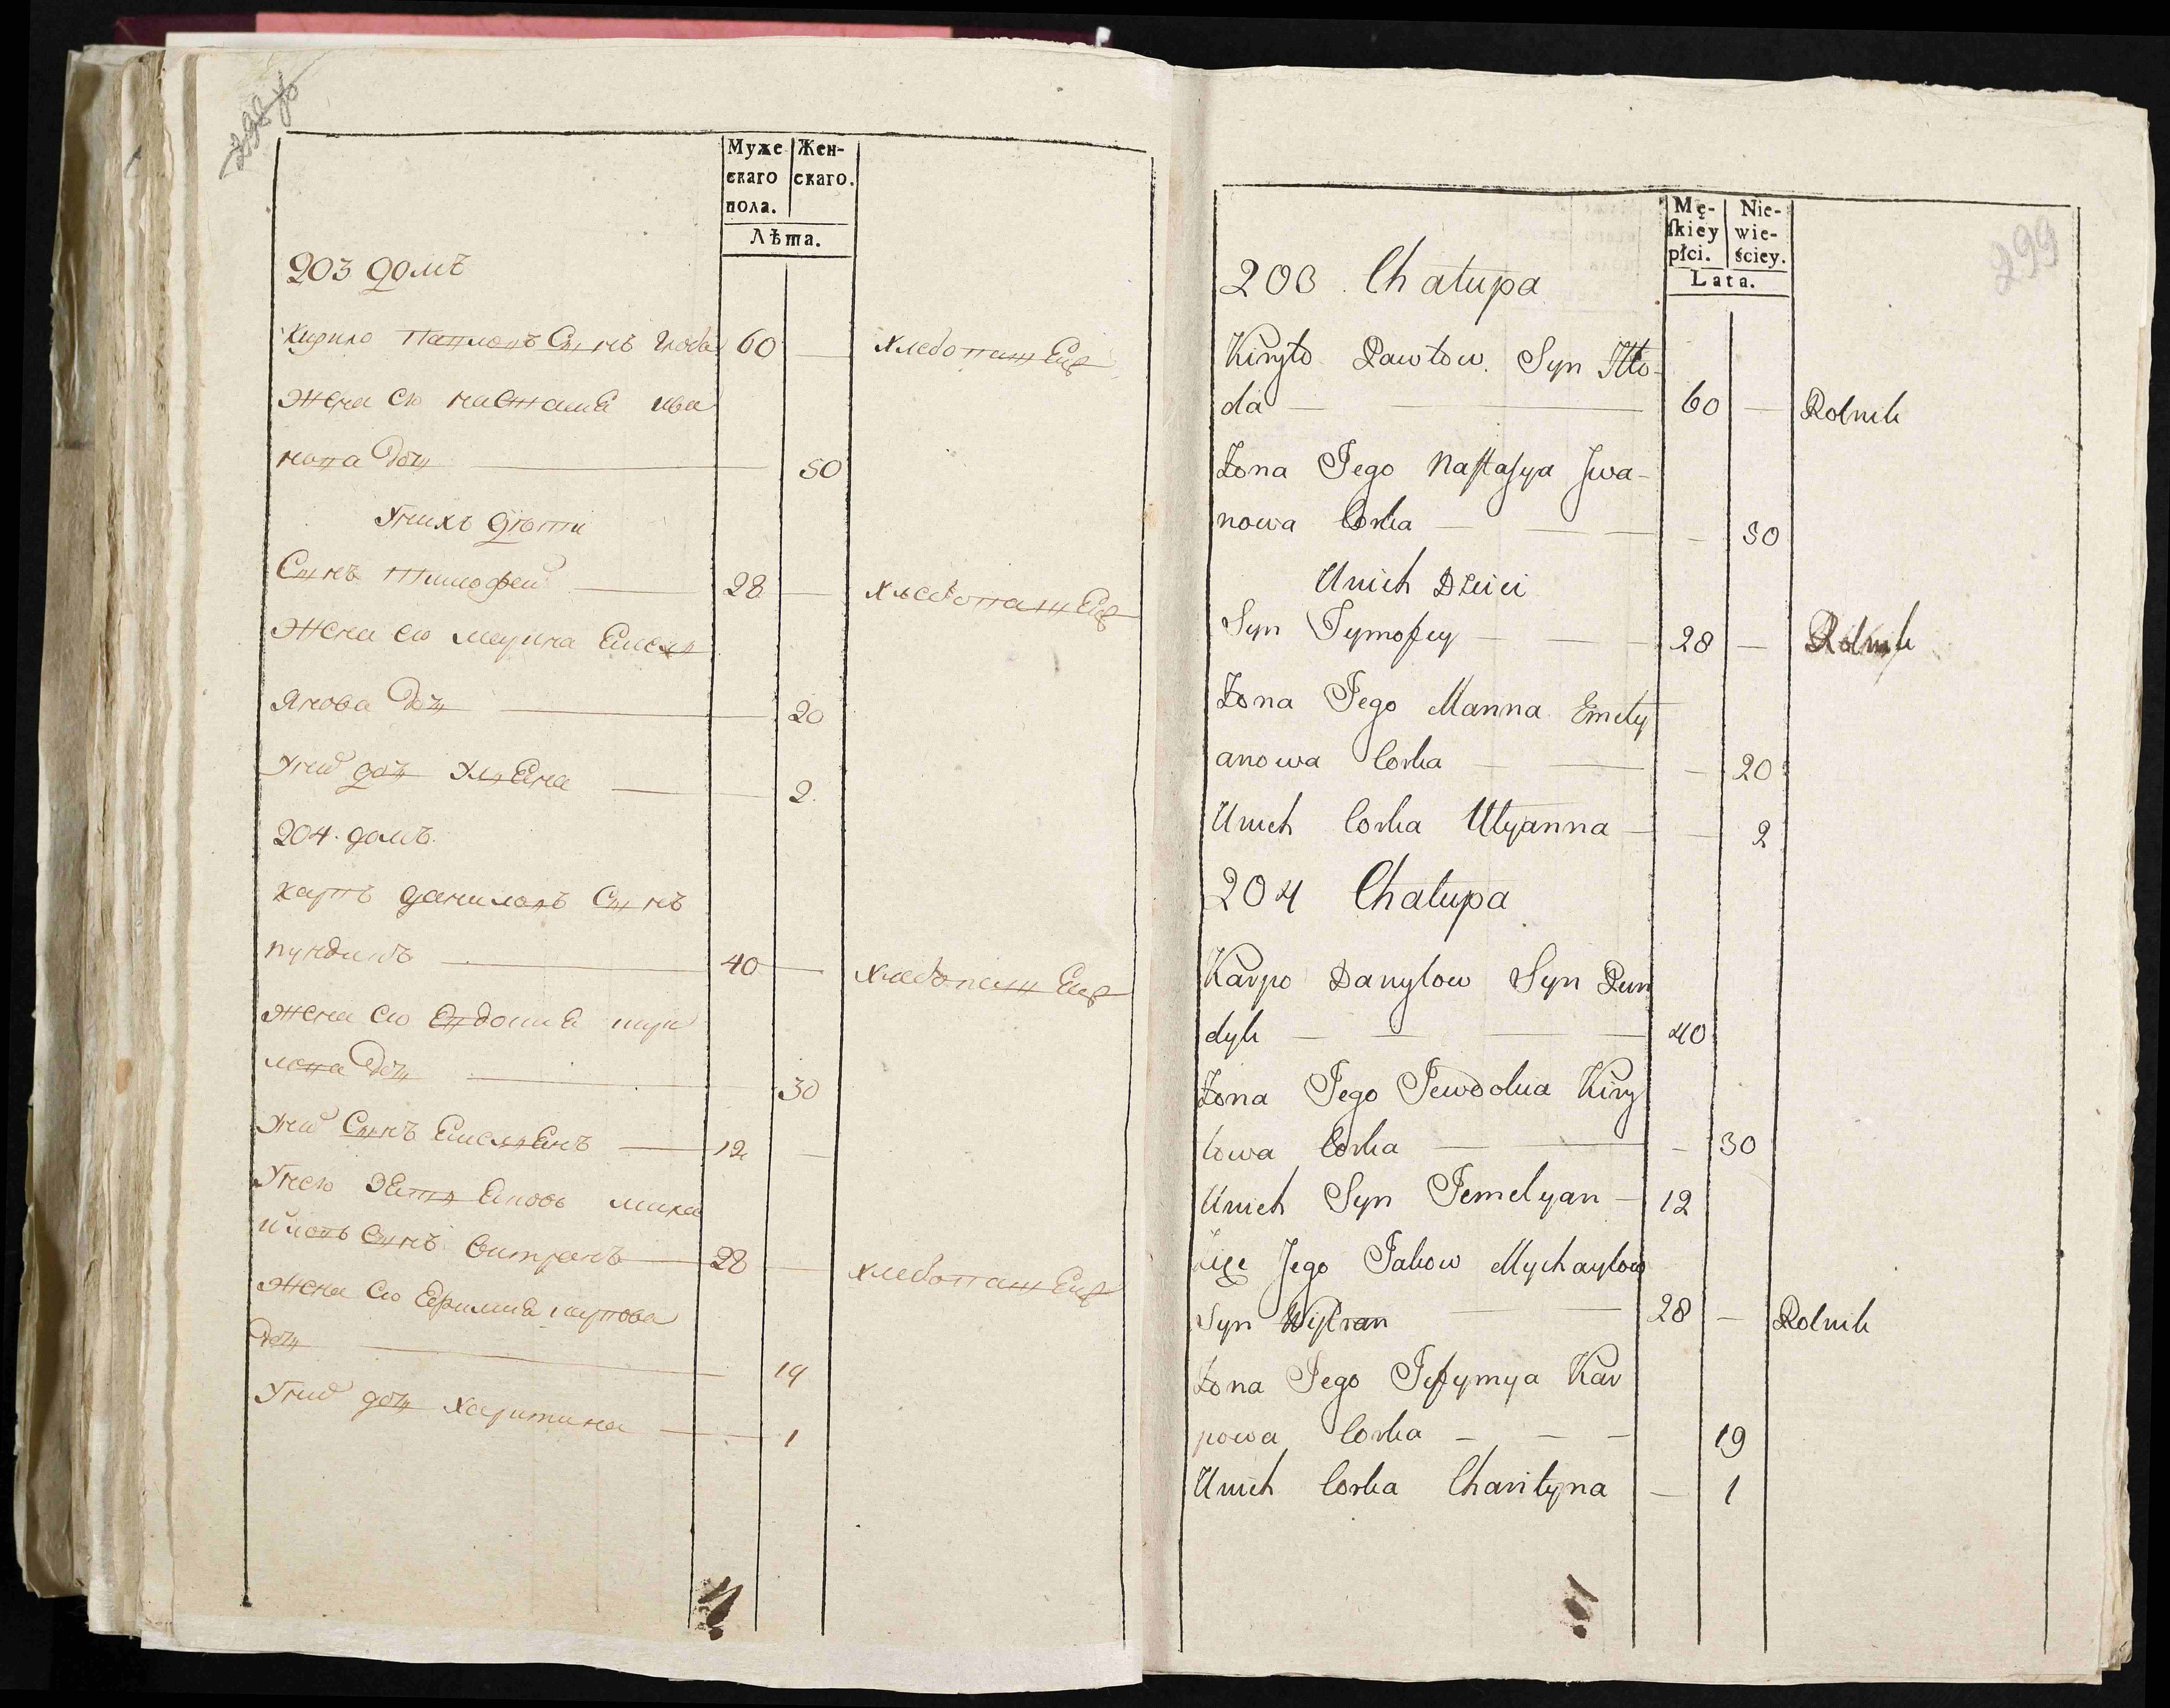 Муже
скаго
пола.
Жен-
скаго.
Лѣта.
203 домъ
Кирило Павловъ Сынъ 60 — хлебопашец
Жена его настасиа ива
нова доч — 50
У них дѣти
Сынъ Тимофей — 28 — хлебопашец
Жена его марина Емел
янова доч — 20
У них доч Улиена — 2.
204. домъ.
Карпъ даниловъ Сынъ
пундикъ — 40 — хлебопашец
Жена его Евдокиа кири
лова доч — 30
У них Сынъ Емелиенъ — 12 —
У него Зять Яковь миха
йловъ Сынъ витранъ — 28 — хлебопашец
Жена его Ефимиа карпова
доч — 19
У них доч Харитина — 1
299
Mę-
skiey
płci.
Nie-
wie-
ściey.
Lata.
203 Chałupa
Kiryło Pawłow. Syn Hło-
da — 60 — Rolnik
Żona Jego Nastasya Jwa-
nowa Corka — — 50
Unich Dzieci
Syn Tymofey — 28 — Rolnik
Żona Jego Marina Emely
anowa Corka — — 20
Unich Corka Ulyanna — — 2
204 Chałupa
Karpo Danyłow Syn Pun
dyk — 40
Żona Jego Jewdokia Kiry
łowa Corka — — 30
Unich Syn Jemelyan — 12
Jego Jakow Mychayłow
Syn Wytran — 28 — Rolnik
Żona Jego Jefymya Kar
powa Corka — 19
Unich Corka Charityna — 1